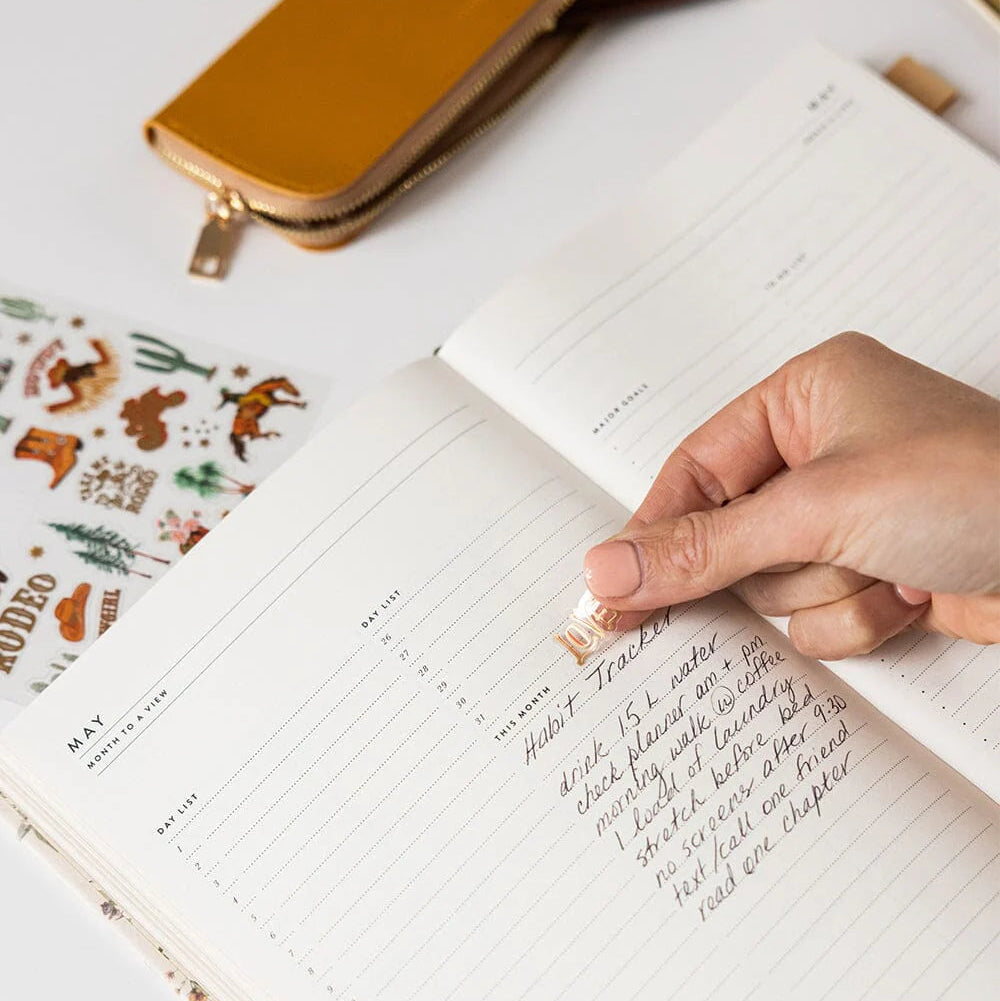 MAY
MONTH TO A VIEW
DAY LIST
1
2
3
4
5
6
7
8
9
DAY LIST
26
27
28
29
30
31
THIS MONTH
Habit Tracker
drink 1.5 L water
check planner am + pm
morning walk w coffee
1 load of laundry
stretch before bed
no screens after 9:30
text/call one friend
read one chapter
MAJOR GOALS
TO DO LIST
RODEO
COWGIRL
RODEO